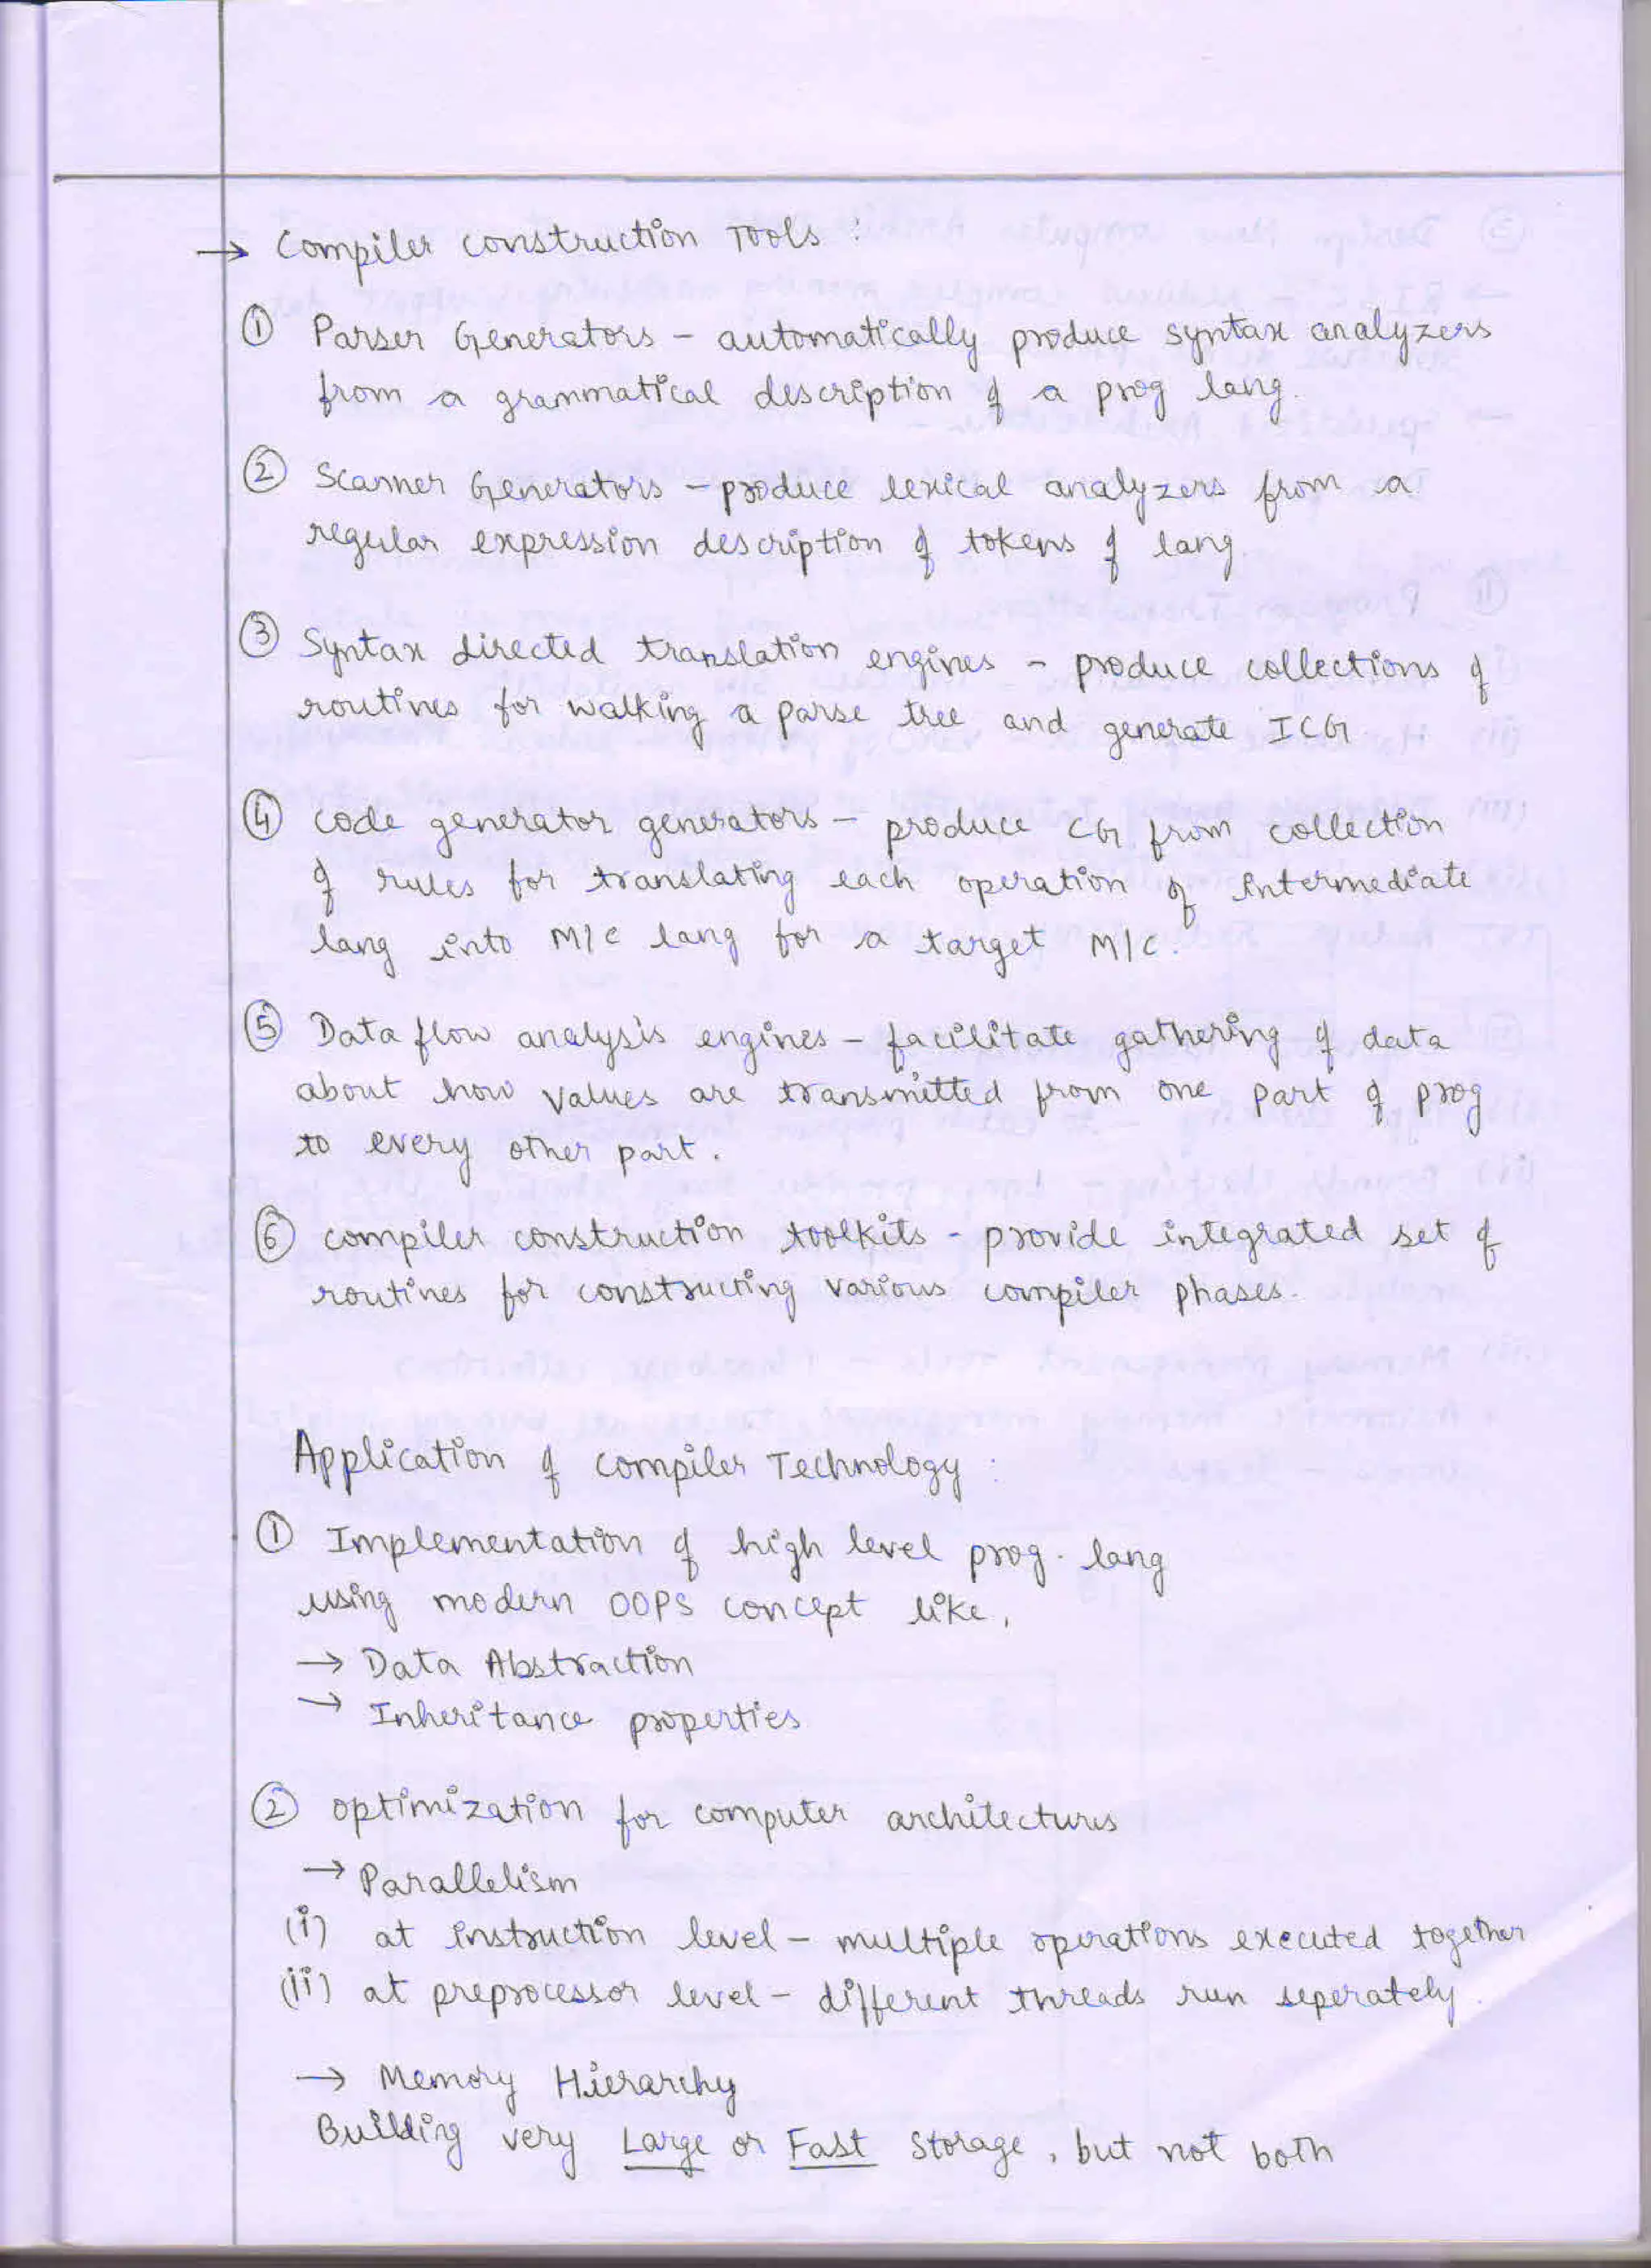 → Compiler construction Tools :
① Parser Generators – automatically produce syntax analyzers
from a grammatical description of a prog lang.
② Scanner Generators – produce lexical analyzers from a
regular expression description of tokens of lang.
③ Syntax directed translation engines – produce collections of
routines for walking a parse tree and generate ICG.
④ code generator generators – produce CG from collection
of rules for translating each operation of intermediate
lang into M/C lang for a target M/C.
⑤ Data flow analysis engines – facilitate gathering of data
about how values are transmitted from one part of prog
to every other part.
⑥ compiler construction toolkits - provide integrated set of
routines for constructing various compiler phases.
Application of compiler Technology :
① Implementation of high level prog. lang
using modern OOPS concept like,
→ Data Abstraction
→ Inheritance properties
② optimization for computer architectures
→ Parallelism
(i) at instruction level – multiple operations executed together
(ii) at preprocessor level – different threads run seperately.
→ Memory Hierarchy
Building very Large or Fast storage, but not both